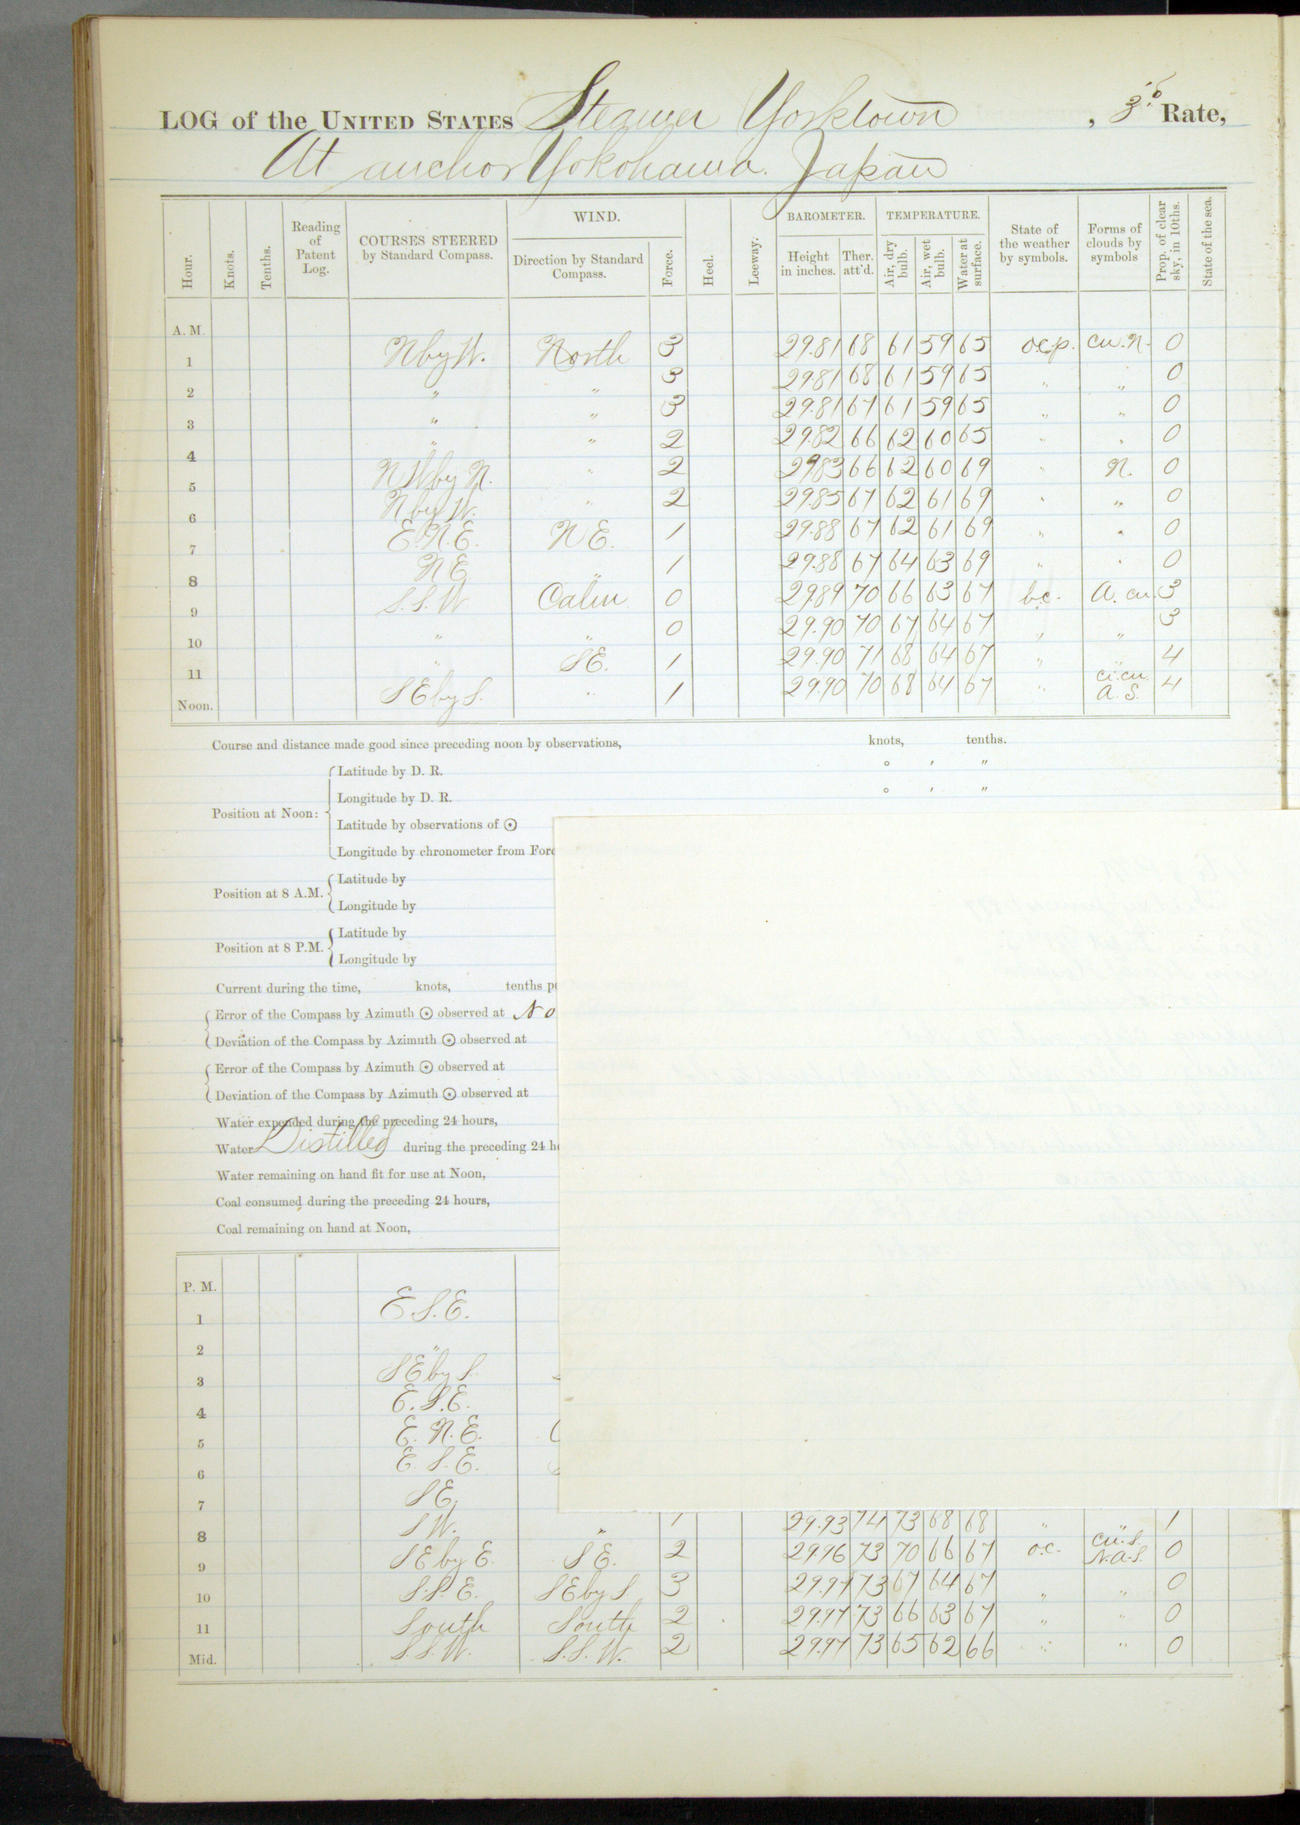 LOG of the UNITED STATES Steamer Yorktown, 3d Rate,
At anchor Yokohama. Japan
Hour. Knots. Tenths. Reading of Patent Log. COURSES STEERED by Standard Compass. WIND. Direction by Standard Compass. Force. Heel. Leeway. BAROMETER. Height in inches. Ther. att'd. TEMPERATURE. Air, dry bulb. Air, wet bulb. Water at surface. State of the weather by symbols. Forms of clouds by symbols Prop. of clear sky, in 10ths. State of the sea.
A. M.
1 N by W. North 3 29.81 68 61 59 65 o.c.p. cu. N. 0
2 " " 3 29.81 68 61 59 65 " " 0
3 " " 3 29.81 67 61 59 65 " " 0
4 " " 2 29.82 66 62 60 65 " " 0
5 N W by N. " 2 29.83 66 62 60 69 " N. 0
6 N by W. " 2 29.85 67 62 61 69 " " 0
7 E. N. E. N E. 1 29.88 67 62 61 69 " " 0
8 N E " 1 29.88 67 64 63 69 " " 0
9 S. S. W Calm 0 29.89 70 66 63 67 b.c. A. cu 3
10 " " 0 29.90 70 67 64 67 " " 3
11 " S E. 1 29.90 71 68 64 67 " " 4
Noon. S E by S. " 1 29.90 70 68 64 67 " ci. cu. A. S. 4
Course and distance made good since preceding noon by observations, knots, tenths.
Position at Noon: Latitude by D. R. ° ′ ″
Longitude by D. R. ° ′ ″
Latitude by observations of ☉
Longitude by chronometer from Fore
Position at 8 A.M. Latitude by
Longitude by
Position at 8 P.M. Latitude by
Longitude by
Current during the time, knots, tenths p
Error of the Compass by Azimuth ☉ observed at No
Deviation of the Compass by Azimuth ☉ observed at
Error of the Compass by Azimuth ☉ observed at
Deviation of the Compass by Azimuth ☉ observed at
Water expended during the preceding 24 hours,
Water Distilled during the preceding 24 h
Water remaining on hand fit for use at Noon,
Coal consumed during the preceding 24 hours,
Coal remaining on hand at Noon,
P. M.
1 E S. E.
2 "
3 S E by S.
4 E. S. E.
5 E. N. E.
6 E. S. E.
7 S E
8 S W. " 1 29.93 74 73 68 68 " " 1
9 S E by E. S E. 2 29.96 73 70 66 67 o.c. cu. S. N. A. S. 0
10 S. S. E. S E by S 3 29.97 73 67 64 67 " " 0
11 South South 2 29.97 73 66 63 67 " " 0
Mid. S. S. W. S. S. W. 2 29.97 73 65 62 66 " " 0